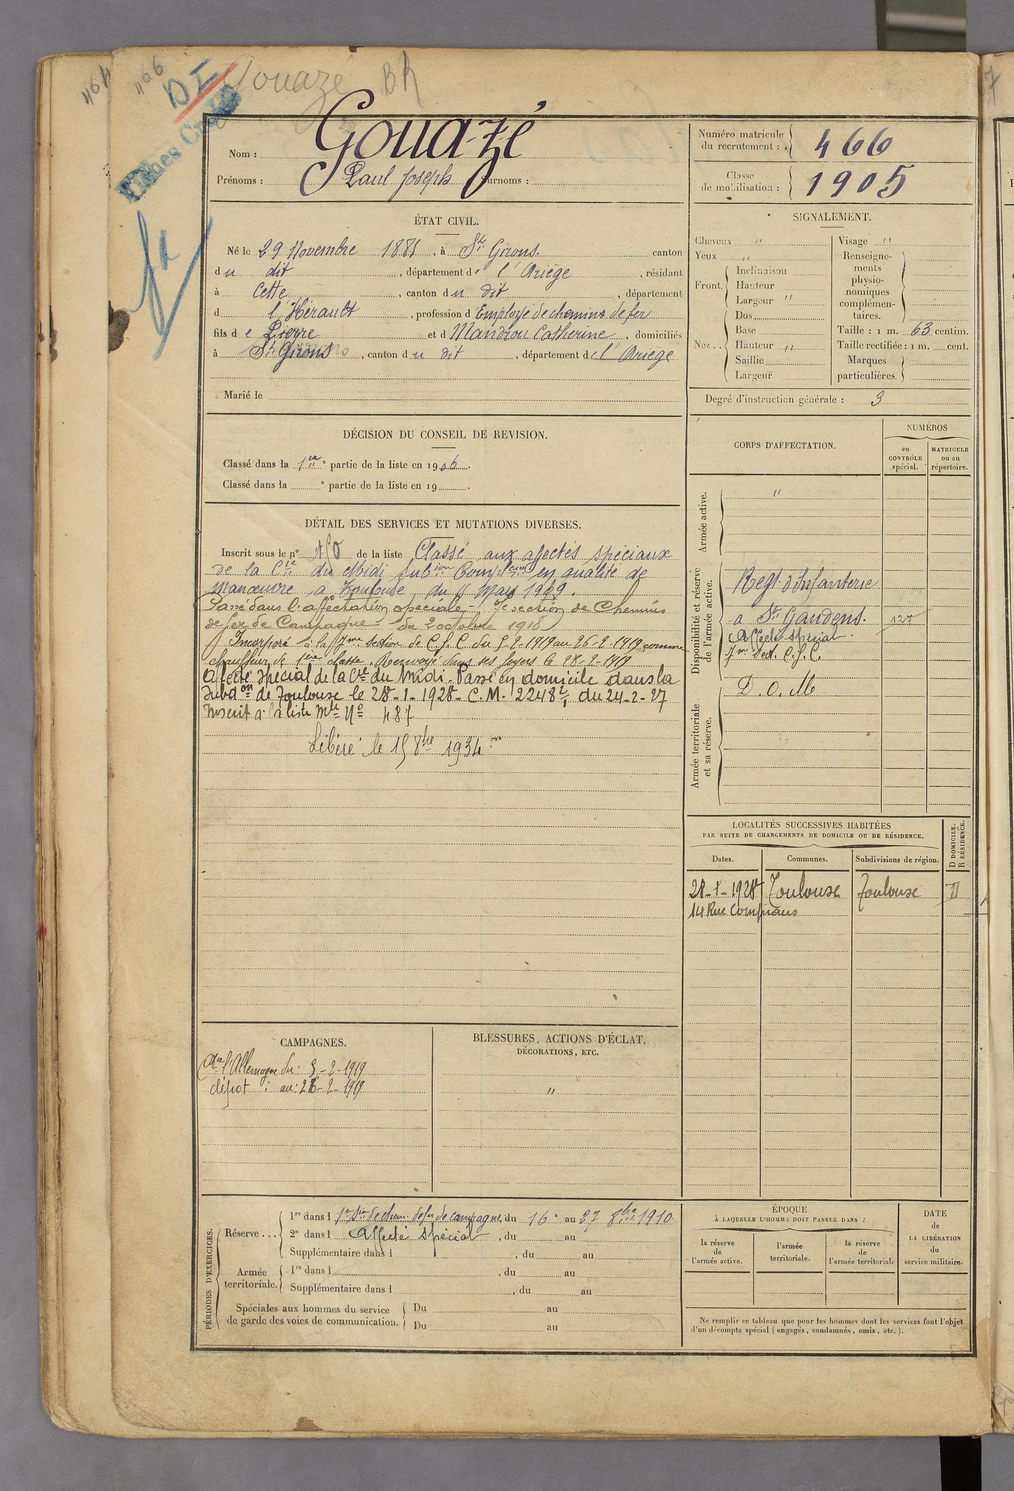 466
Gouazé BR
DI
Fiches
Nom : Gouazé
Prénoms : Paul Joseph Surnoms :
Numéro matricule du recrutement : 466
Classe de mobilisation : 1905
ÉTAT CIVIL.
Né le 29 Novembre 1885, à St Girons. canton
du dit, département de l'Ariège, résidant
à Cette, canton du dit, département
d l'Hérault, profession d Employé de chemins de fer
fils de Pierre et d Mandrou Catherine, domiciliés
à St Girons, canton du dit, département de l'Ariège
Marié le
SIGNALEMENT.
Cheveux "
Yeux "
Front. Inclinaison
Hauteur
Largeur "
Nez.. Dos
Base
Hauteur "
Saillie
Largeur
Visage "
Renseignements physionomiques complémentaires.
Taille : 1 m. 63 centim.
Taille rectifiée : 1 m. cent.
Marques particulières.
Degré d'instruction générale : 3
DÉCISION DU CONSEIL DE REVISION.
Classé dans la 1re partie de la liste en 1906.
Classé dans la e partie de la liste en 19 .
DÉTAIL DES SERVICES ET MUTATIONS DIVERSES.
Inscrit sous le n° de la liste Classé aux affectés spéciaux
de la Cie du Midi en qualité de
Manœuvre à Toulouse, du Mars 1909.
Passé dans l'affectation spéciale, 7e section de Chemins
de fer de Campagne du 2 octobre 1918
Incorporé à la 7me section de C.F.C. du 5-2-1919 au 26-2-1919 comme
chauffeur de 1ère classe. Renvoyé dans ses foyers le 28-2-1919
Affecté spécial de la Cie du Midi. Passé en domicile dans la
subdon de Toulouse le 28-1-1928 C.M. 2248 du 24-2-27
Inscrit à la liste mle No 487
Libéré le 15 8bre 1934
CORPS D'AFFECTATION.
NUMÉROS
DU CONTRÔLE spécial.
MATRICULE ou au répertoire.
Armée active.
"
Disponibilité et réserve de l'armée active.
Regt d'Infanterie
à St Gaudens. 127
Affecté spécial.
7me Sect. C.F.C.
Armée territoriale et sa réserve.
D.O.M
LOCALITÉS SUCCESSIVES HABITÉES
PAR SUITE DE CHANGEMENTS DE DOMICILE OU DE RÉSIDENCE.
D DOMICILE. R RÉSIDENCE.
Dates. Communes. Subdivisions de région.
28-1-1928 Toulouse Toulouse D
14 Rue Compans
CAMPAGNES.
Ctre l'Allemagne du : 5-2-1919
dépôt : au : 28-2-1919
BLESSURES, ACTIONS D'ÉCLAT,
DÉCORATIONS, ETC.
"
PÉRIODES D'EXERCICES.
Réserve.... 1re dans l 1e Son de chem. de fer de campagne, du 16 au 27 8bre 1910
2e dans l Affecté spécial, du au
Supplémentaire dans l , du au
Armée territoriale. 1re dans l , du au
Supplémentaire dans l , du au
Spéciales aux hommes du service de garde des voies de communication. Du au
Du au
ÉPOQUE
À LAQUELLE L'HOMME DOIT PASSER DANS :
la réserve de l'armée active.
l'armée territoriale.
la réserve de l'armée territoriale
DATE de LA LIBÉRATION du service militaire.
Ne remplir ce tableau que pour les hommes dont les services font l'objet
d'un décompte spécial (engagés, condamnés, omis, etc.).